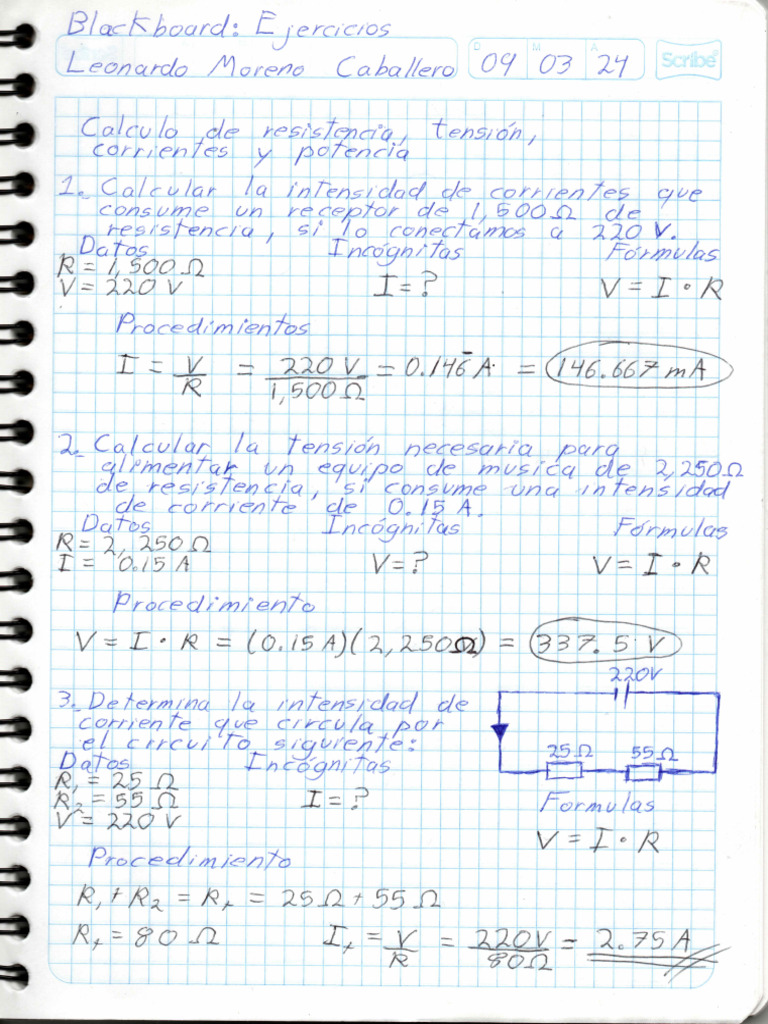 Blackboard: Ejercicios
Leonardo Moreno Caballero
D 09 M 03 A 24
Scribe
Calculo de resistencia, tensión,
corrientes y potencia
1. Calcular la intensidad de corrientes que
consume un receptor de 1,500 Ω de
resistencia, si lo conectamos a 220 V.
Datos Incógnitas Fórmulas
R = 1,500 Ω
V = 220 V I = ? V = I · R
Procedimientos
I = V/R = 220 V/1,500 Ω = 0.146̄ A = 146.667 mA
2. Calcular la tensión necesaria para
alimentar un equipo de musica de 2,250 Ω
de resistencia, si consume una intensidad
de corriente de 0.15 A.
Datos Incógnitas Fórmulas
R = 2,250 Ω
I = 0.15 A V = ? V = I · R
Procedimiento
V = I · R = (0.15A)(2,250Ω) = 337.5 V
3. Determina la intensidad de
corriente que circula por
el circuito siguiente:
220V
25Ω 55Ω
Datos Incógnitas
R₁ = 25 Ω
R₂ = 55 Ω I = ? Formulas
V = 220 V V = I · R
Procedimiento
R₁ + R₂ = Rₜ = 25 Ω + 55 Ω
Rₜ = 80 Ω Iₜ = V/R = 220V/80Ω = 2.75 A